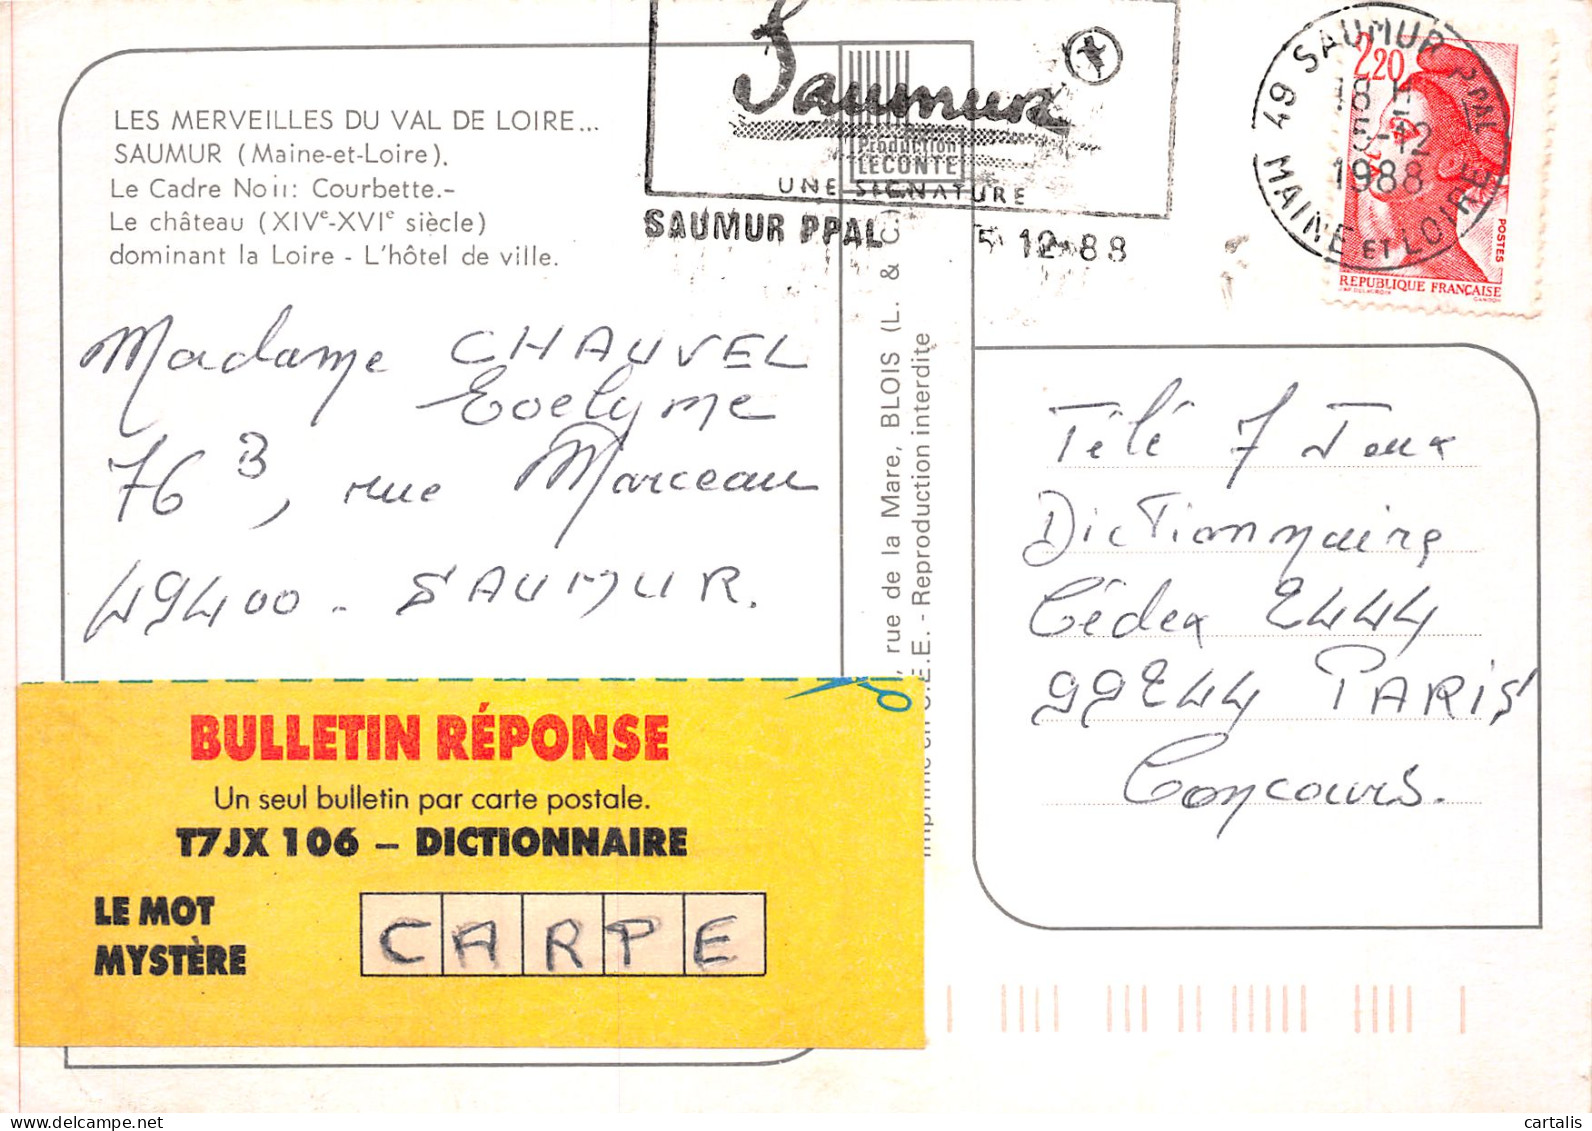 LES MERVEILLES DU VAL DE LOIRE...
SAUMUR (Maine-et-Loire).
Le Cadre Noir: Courbette.-
Le château (XIVe-XVIe siècle)
dominant la Loire - L'hôtel de ville.
Saumur
UNE SIGNATURE
SAUMUR PPAL 5 12 88
Production
LECONTE
49 SAUMUR PPAL
18 H
5-12
1988
MAINE ET LOIRE
2,20
POSTES
REPUBLIQUE FRANÇAISE
Madame CHAUVEL
Evelyne
76 B, rue Marceau
49400 - SAUMUR.
rue de la Mare, BLOIS (L. & C.
Imprimé en C.E.E. - Reproduction interdite
Télé 7 Jeux
Dictionnaire
Cédex 2444
99244 PARIS
Concours.
BULLETIN RÉPONSE
Un seul bulletin par carte postale.
T7JX 106 – DICTIONNAIRE
LE MOT
MYSTÈRE
CARPE
cartalis